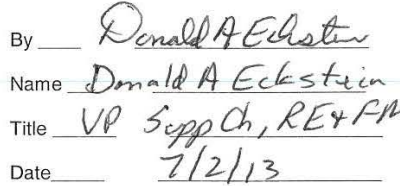 By Donald A Eckstein
Name Donald A Eckstein
Title VP Supp Ch, RE & FM
Date 7/2/13